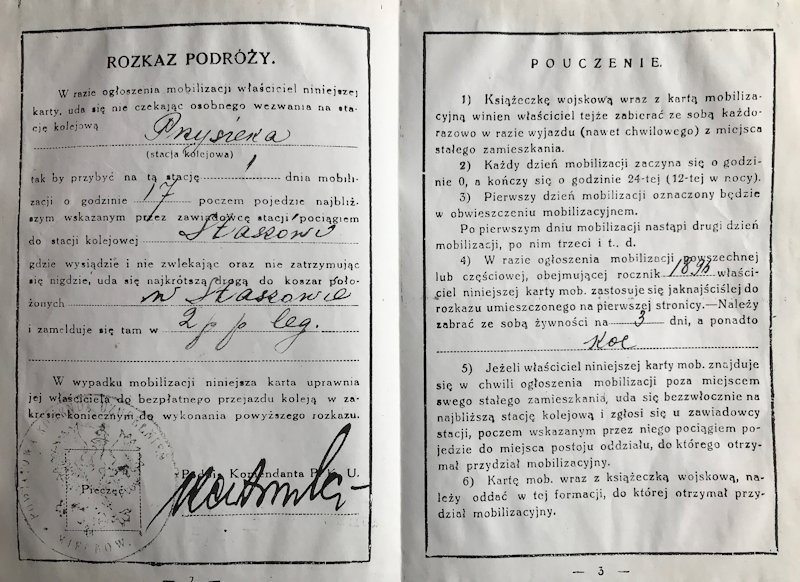 ROZKAZ PODRÓŻY.
W razie ogłoszenia mobilizacji właściciel niniejszej
karty, uda się nie czekając osobnego wezwania na sta-
cję kolejową Przysieka
(stacja kolejowa)
tak by przybyć na tą stację 1 dnia mobili-
zacji o godzinie 17 poczem pojedzie najbliż-
szym wskazanym przez zawiadowcę stacji pociągiem
do stacji kolejowej Staszów
gdzie wysiądzie i nie zwlekając oraz nie zatrzymując
się nigdzie, uda się najkrótszą drogą do koszar poło-
żonych w Staszowie
i zamelduje się tam w 2 p p leg.
W wypadku mobilizacji niniejsza karta uprawnia
jej właściciela do bezpłatnego przejazdu koleją w za-
kresie koniecznym do wykonania powyższego rozkazu.
Komendanta P. K. U.
Pieczęć
POUCZENIE.
1) Książeczkę wojskową wraz z kartą mobiliza-
cyjną winien właściciel tejże zabierać ze sobą każdo-
razowo w razie wyjazdu (nawet chwilowego) z miejsca
stałego zamieszkania.
2) Każdy dzień mobilizacji zaczyna się o godzi-
nie 0, a kończy się o godzinie 24-tej (12-tej w nocy).
3) Pierwszy dzień mobilizacji oznaczony będzie
w obwieszczeniu mobilizacyjnem.
Po pierwszym dniu mobilizacji nastąpi drugi dzień
mobilizacji, po nim trzeci i t.. d.
4) W razie ogłoszenia mobilizacji powszechnej
lub częściowej, obejmującej rocznik 1896 właści-
ciel niniejszej karty mob. zastosuje się jaknajściślej do
rozkazu umieszczonego na pierwszej stronicy.—Należy
zabrać ze sobą żywności na 3 dni, a ponadto
koc
5) Jeżeli właściciel niniejszej karty mob. znajduje
się w chwili ogłoszenia mobilizacji poza miejscem
swego stałego zamieszkania, uda się bezzwłocznie na
najbliższą stację kolejową i zgłosi się u zawiadowcy
stacji, poczem wskazanym przez niego pociągiem po-
jedzie do miejsca postoju oddziału, do którego otrzy-
mał przydział mobilizacyjny.
6) Kartę mob. wraz z książeczką wojskową, na-
leży oddać w tej formacji, do której otrzymał przy-
dział mobilizacyjny.
— 3 —